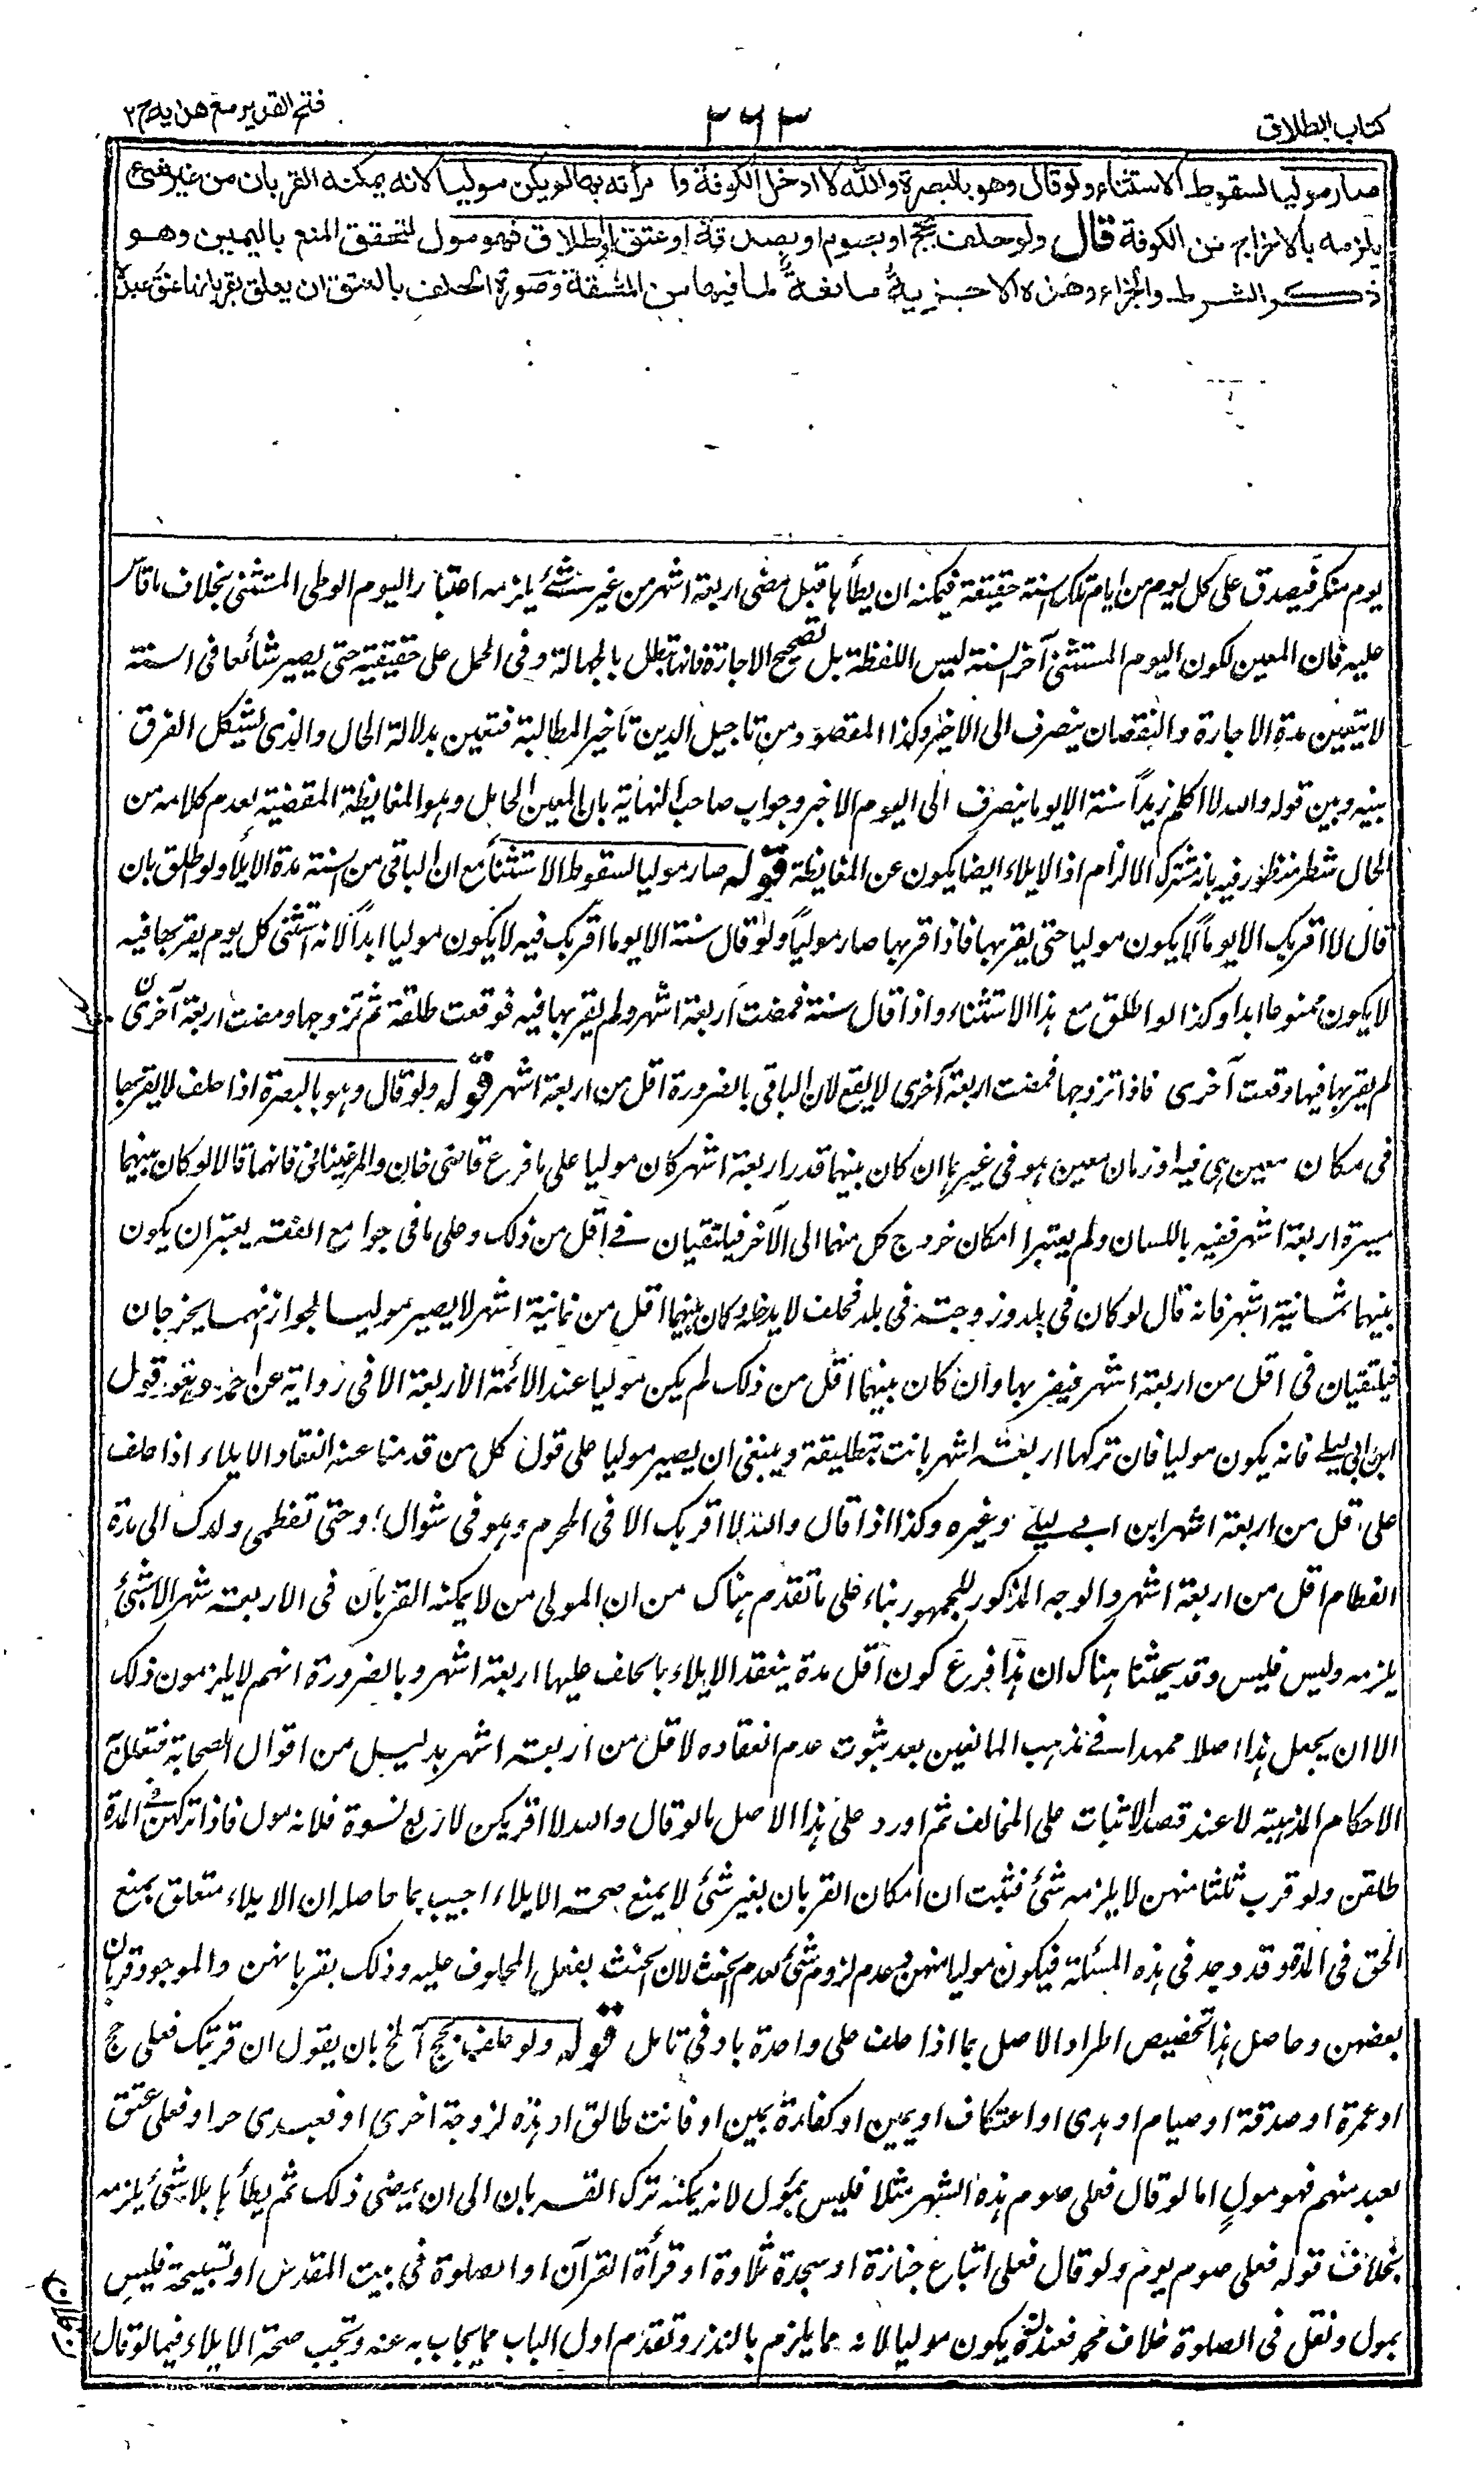 كتاب الطلاق
٢٦٣
فتح القدير مع هدايه ج ٢
صار موليا لسقوط الاستثناء ولو قال وهو بالبصرة والله لا ادخل الكوفة وامرأته بها لم يكن موليا لانه يمكنه القربان من غير شئ
يلزمه بالاخراج من الكوفة قال ولو حلف بحج او بصوم او بصدقة او عتق او طلاق فهو مول لتحقق المنع باليمين وهو
ذكر الشرط والجزاء وهذه الاجزية مانعة لما فيها من المشقة وصورة الحلف بالعتق ان يعلق بقربانها عتق عبده
يوم منكر فيصدق على كل يوم من ايام تلك السنة حقيقة فيمكنه ان يطأها قبل مضى اربعة اشهر من غير شئ يلزمه اعتبار اليوم الوطى المستثنى بخلاف ما قاس
عليه فان المعين لكون اليوم المستثنى آخر السنة ليس اللفظة بل تصحيح الاجارة فانها تبطل بالجهالة وفى الحمل على حقيقته حتى يصير شائعا فى السنة
لا يتعين مدة الاجارة والنقصان ينصرف الى الاخير وكذا المقصود من تاجيل الدين تاخير المطالبة فتعين بدلالة الحال والذى يشكل الفرق
بينه وبين قوله والله لا اكلم زيداً سنة الا يوما ينصرف الى اليوم الاخير وجواب صاحب النهاية بان المعين الحامل وهو المغايظة المقتضية لعدم كلامه من
الحال شطر منظور فيه بانه مشترك الالزام اذ الايلاء ايضا يكون عن المغايظة قوله صار موليا لسقوط الاستثناء مع ان الباقى من السنة مدة الايلاء ولو اطلق بان
قال لا اقربك الا يوماً لا يكون موليا حتى يقربها فاذا قربها صار مولياً ولو قال سنة الا يوما اقربك فيه لا يكون موليا ابداً لانه استثنى كل يوم يقربها فيه
لا يكون ممنوعا ابدا وكذا لو اطلق مع هذا الاستثناء واذا قال سنة فمضت اربعة اشهر ولم يقربها فيه فوقعت طلقة ثم تزوجها ومضت اربعة آخرى
لم يقربها فيها وقعت آخرى فاذا تزوجها فمضت اربعة آخرى لا يقع لان الباقى بالضرورة اقل من اربعة اشهر قوله ولو قال وهو بالبصرة اذا حلف لا يقربها
فى مكان معين هى فيه او زمان معين هو فى غيرها ان كان بينهما قدر اربعة اشهر كان موليا على ما فرع قاضى خان والمرغينانى فانهما قالا لو كان بينهما
مسيرة اربعة اشهر ففيئه باللسان ولم يعتبرا امكان خروج كل منهما الى الآخر فيلتقيان فى اقل من ذلك وعلى ما فى جوامع الفقه يعتبر ان يكون
بينهما ثمانية اشهر فانه قال لو كان فى بلد وزوجته فى بلد فحلف لا يدخله وكان بينهما اقل من ثمانية اشهر لا يصير موليا لجواز انهما يخرجان
فيلتقيان فى اقل من اربعة اشهر فيقربها وان كان بينهما اقل من ذلك لم يكن موليا عند الائمة الاربعة الا فى رواية عن احمد وهو قول
ابن ابى ليلى فانه يكون موليا فان تركها اربعة اشهر بانت بتطليقة وينبغى ان يصير موليا على قول كل من قدمنا عنه انعقاد الايلاء اذا حلف
على اقل من اربعة اشهر ابن ابى ليلى وغيره وكذا اذا قال والله لا اقربك الا فى المحرم وهو فى شوال او حتى تفطمى ولدك الى مدة
الفطام اقل من اربعة اشهر والوجه المذكور للجمهور بناء على ما تقدم هناك من ان المولى من لا يمكنه القربان فى الاربعة شهر الا بشئ
يلزمه وليس فليس وقد بحثنا هناك ان هذا فرع كون اقل مدة ينعقد الايلاء بالحلف عليها اربعة اشهر وبالضرورة انهم لا يلزمون ذلك
الا ان يجعل هذا اصلا ممهدا فى مذهب المانعين بعد ثبوت عدم انعقاده لاقل من اربعة اشهر بدليل من اقوال الصحابة فتعلل به
الاحكام المذهبية لا عند قصد الاثبات على المخالف ثم اورد على هذا الاصل ما لو قال والله لا اقربكن لاربع نسوة فلانه مول فاذا تركهن فى المدة
طلقن ولو قرب ثلثا منهن لا يلزمه شئ فثبت ان امكان القربان بغير شئ لا يمنع صحة الايلاء اجيب بما حاصله ان الايلاء متعلق بمنع
الحق فى المدة وقد وجد فى هذه المسئلة فيكون موليا منهن وعدم لزوم شئ لعدم الحنث لان الحنث بفعل المحلوف عليه وذلك بقربانهن والموجود قربان
بعضهن وحاصل هذا تخصيص اطراد الاصل بما اذا حلف على واحدة بادنى تامل قوله ولو حلف بحج آلخ بان يقول ان قربتك فعلى حج
او عمرة او صدقة او صيام او هدى او اعتكاف او يمين او كفارة يمين او فانت طالق او هذه لزوجة اخرى او فعبدى حر او فعلى عتق
لعبد منهم فهو مولٍ اما لو قال فعلى صوم هذه الشهر مثلا فليس بمول لانه يمكنه ترك القربان الى ان يمضى ذلك ثم يطأها بلا شئ يلزمه
بخلاف قوله فعلى صوم يوم ولو قال فعلى اتباع جنازة او سجدة تلاوة او قرأة القرآن او الصلوة فى بيت المقدس او تسبيحة فليس
بمول ونقل فى الصلوة خلاف محمد فعنده يكون موليا لانه مما يلزم بالنذر وتقدم اول الباب مما يجاب به عنه وتجب صحة الايلاء فيما لو قال